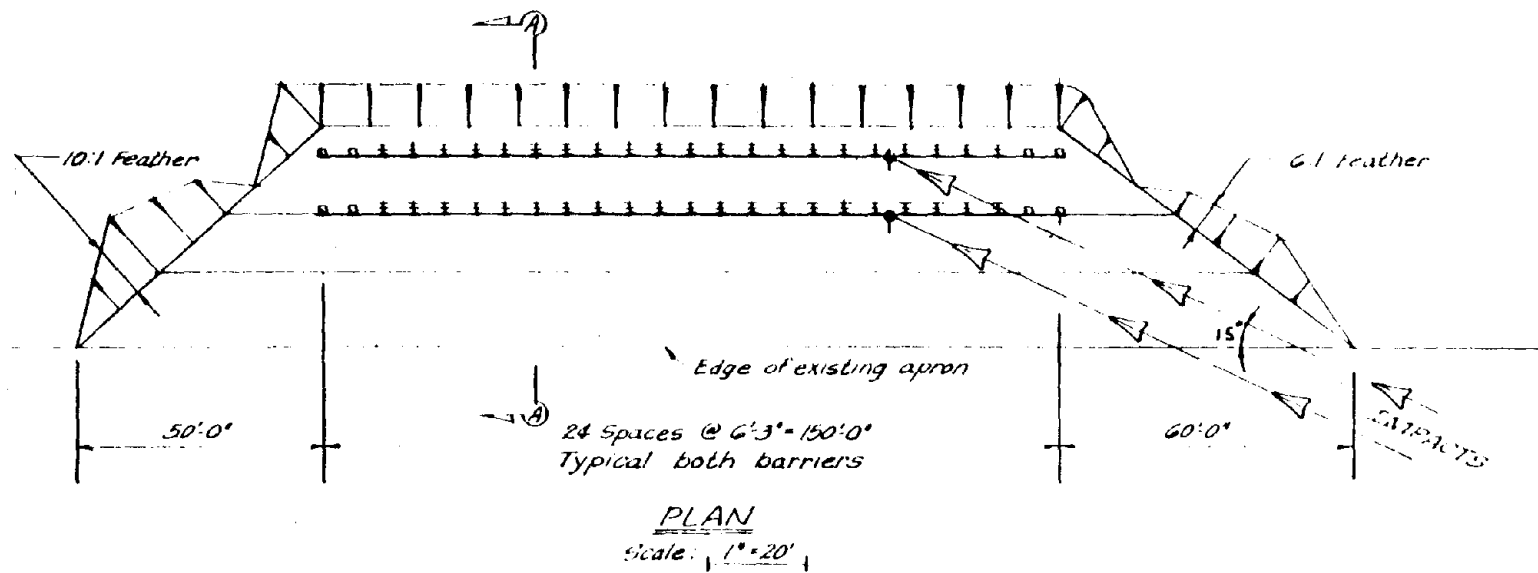 A
10:1 Feather
6:1 Feather
15°
Edge of existing apron
A
50'-0"
24 Spaces @ 6'-3" = 150'-0"
60'-0"
Typical both barriers
IMPACTS
PLAN
Scale: 1" = 20'